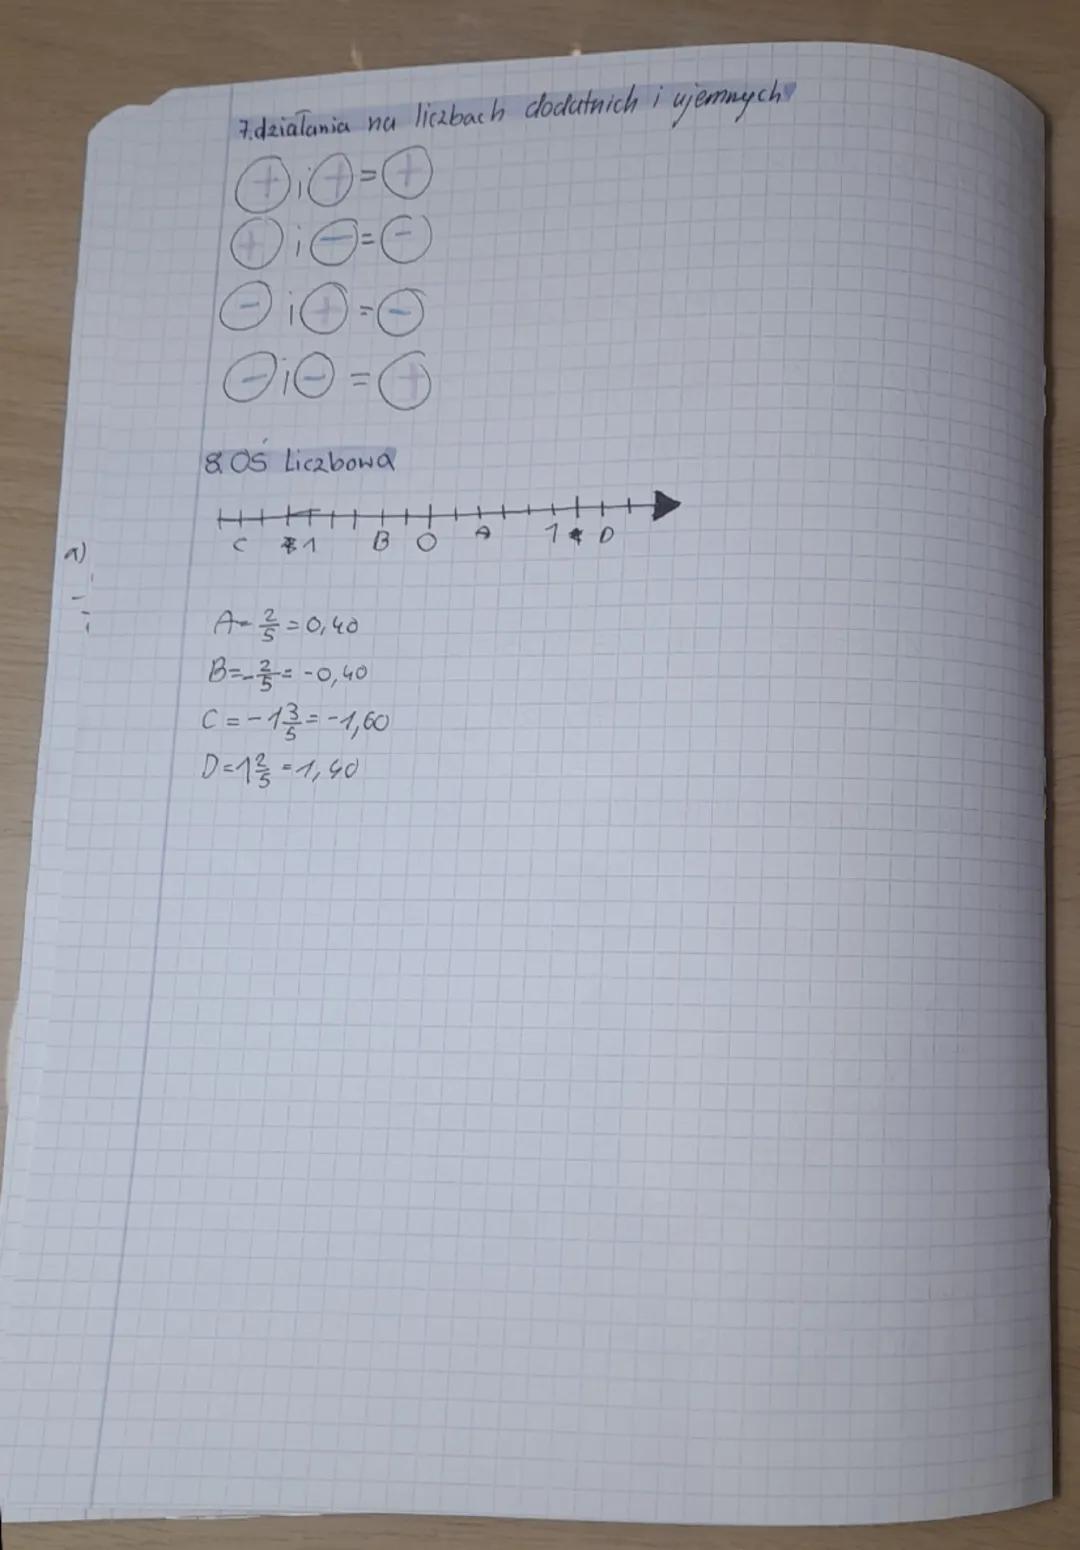 7. działania na liczbach dodatnich i ujemnych
+ i + = +
+ i - = -
- i + = -
- i - = +
8. OŚ Liczbowa
C 1 B O A 1 D
a)
A = 2/5 = 0,40
B = -2/5 = -0,40
C = -1 3/5 = -1,60
D = 1 2/5 = 1,40